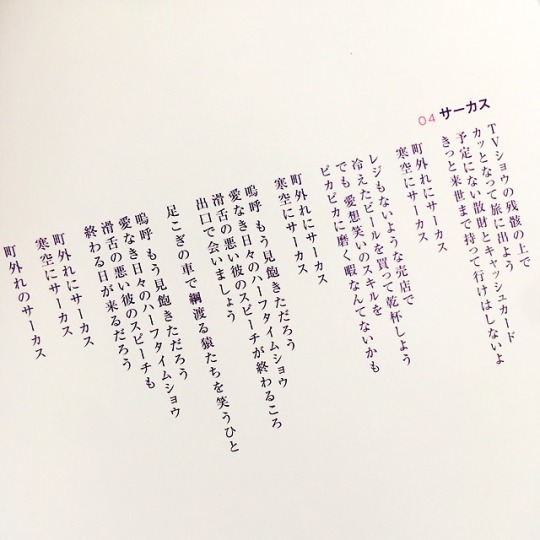 04 サーカス
TVショウの残骸の上で
カッとなって旅に出よう
予定にない散財とキャッシュカード
きっと来世まで持って行けはしないよ
町外れにサーカス
寒空にサーカス
レジもないような売店で
冷えたビールを買って乾杯しよう
でも 愛想笑いのスキルを
ピカピカに磨く暇なんてないかも
町外れにサーカス
寒空にサーカス
嗚呼 もう見飽きただろう
愛なき日々のハーフタイムショウ
滑舌の悪い彼のスピーチが終わるころ
出口で会いましょう
足こぎの車で 綱渡る猿たちを笑うひと
嗚呼 もう見飽きただろう
愛なき日々のハーフタイムショウ
滑舌の悪い彼のスピーチも
終わる日が来るだろう
町外れにサーカス
寒空にサーカス
町外れのサーカス